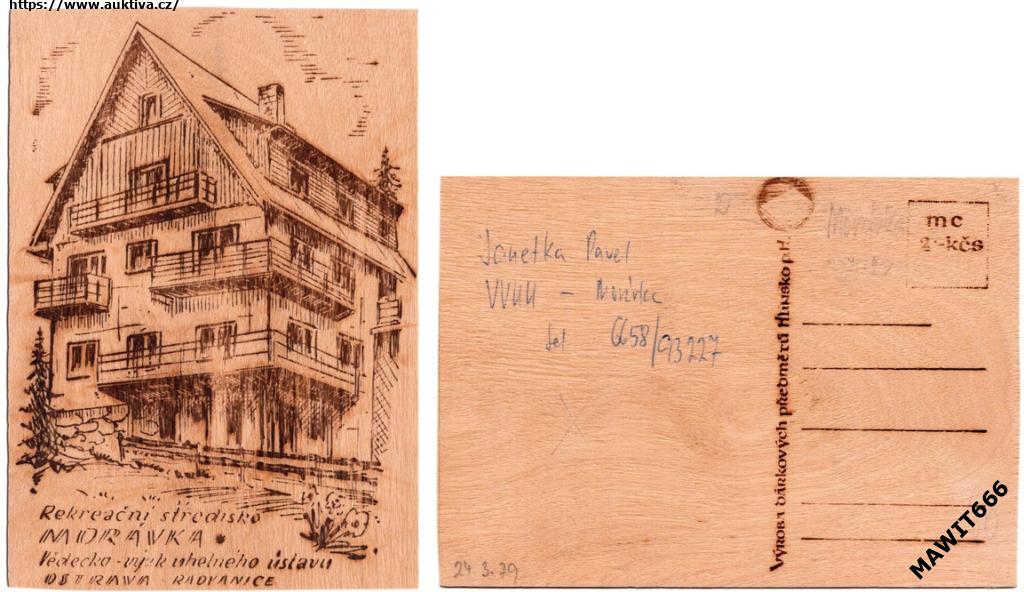 https://www.auktiva.cz/
Rekreační středisko
MORÁVKA
Vědecko-výzk uhelného ústavu
OSTRAVA - RADVANICE
Pavel
VVUÚ - Morávka
tel 0658/93227
24.3.79
VÝROBA DÁRKOVÝCH PŘEDMĚTŮ HLINSKO p.H.
Morávka
mc
2-kčs
MAWIT666